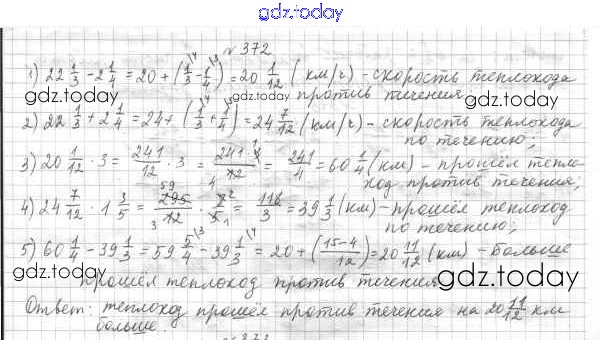 gdz.today
№ 372
1) 22 1/3 - 2 1/4 = 20 + (1/3 - 1/4) = 20 1/12 (км/ч) - скорость теплохода
gdz.today против течения gdz.today
2) 22 1/3 + 2 1/4 = 24 + (1/3 + 1/4) = 24 7/12 (км/ч) - скорость теплохода
по течению;
3) 20 1/12 · 3 = 241/12 · 3 = 241·1/12 = 241/4 = 60 1/4 (км) - прошёл тепло-
gdz.today ход против течения;
4) 24 7/12 · 1 3/5 = 295/12 · 8/5 = 118/3 = 39 1/3 (км) - прошёл теплоход
по течению;
5) 60 1/4 - 39 1/3 = 59 5/4 - 39 1/3 = 20 + (15-4/12) = 20 11/12 (км) - больше
прошёл теплоход против течения gdz.today
Ответ: теплоход прошёл против течения на 20 11/12 км
больше.
№ 373